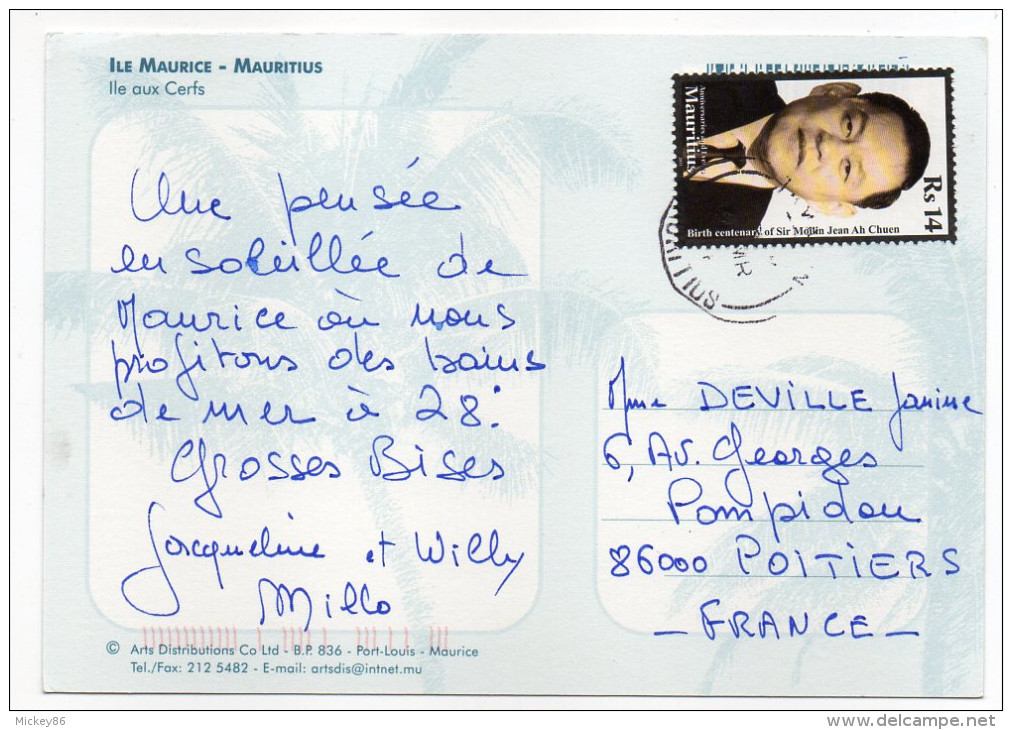 ILE MAURICE - MAURITIUS
Ile aux Cerfs
Une pensée
ensoleillée de
Maurice où nous
profitons des bains
de mer à 28°.
Grosses Bises
Jacqueline et Willy
Millo
© Arts Distributions Co Ltd - B.P. 836 - Port-Louis - Maurice
Tel./Fax: 212 5482 - E-mail: artsdis@intnet.mu
Mauritius
Rs 14
Birth centenary of Sir Moilin Jean Ah Chuen
Mme DEVILLE Janine
6, Av. Georges
Pompidou
86000 POITIERS
- FRANCE -
Mickey86
delcampe.net